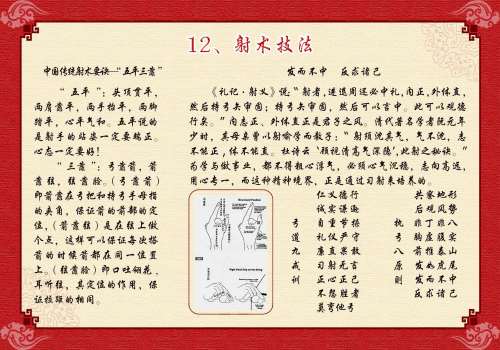 12、射术技法
中国传统射术要诀—“五平三靠”
“五平”：头顶贯平，
两肩膏平，两手抬平，两脚
踏平，心平气和。五平说的
是射手的站姿一定要端正，
心态一定要好！
“三靠”：弓靠箭，箭
靠弦，弦靠脸。（弓靠箭）
即箭靠在弓把和持弓手母指
的夹角，保证箭的前部的定
位，（箭靠弦）是在弦上做
个点，这样可以保证每次搭
箭的时候箭都在同一位置
上。（弦靠脸）即口吐翎花，
耳听弦，其定位的作用，保
证拉距的相同。
发而不中 反求诸己
《礼记·射义》说：“射者，进退周还必中礼，内正，外体直，
然后持弓矢审固；持弓矢审固，然后可以言中。此可以观德
行矣。”内志正、外体直正是君子之风。清代著名学者阮元年
少时，其母亲曾以射喻学而教子：“射须沈其气，气不沈，志
不能正，体不能直。杜诗云‘顾视清高气深稳’，此射之秘诀。”
为学与做事业，都不得粗心浮气，必须心气沉稳，志向高远，
用心专一，而这种精神境界，正是通过习射来培养的。
弓道九戒训
仁义德行
诚实谦逊
自重节操
礼仪严守
廉直果敢
射则无言
正心正己
不怨胜者
莫弯他弓
执弓八原则
共察地形
后观风势
非丁非八
胸虚腹实
前推泰山
发如虎尾
发而不中
反求诸己